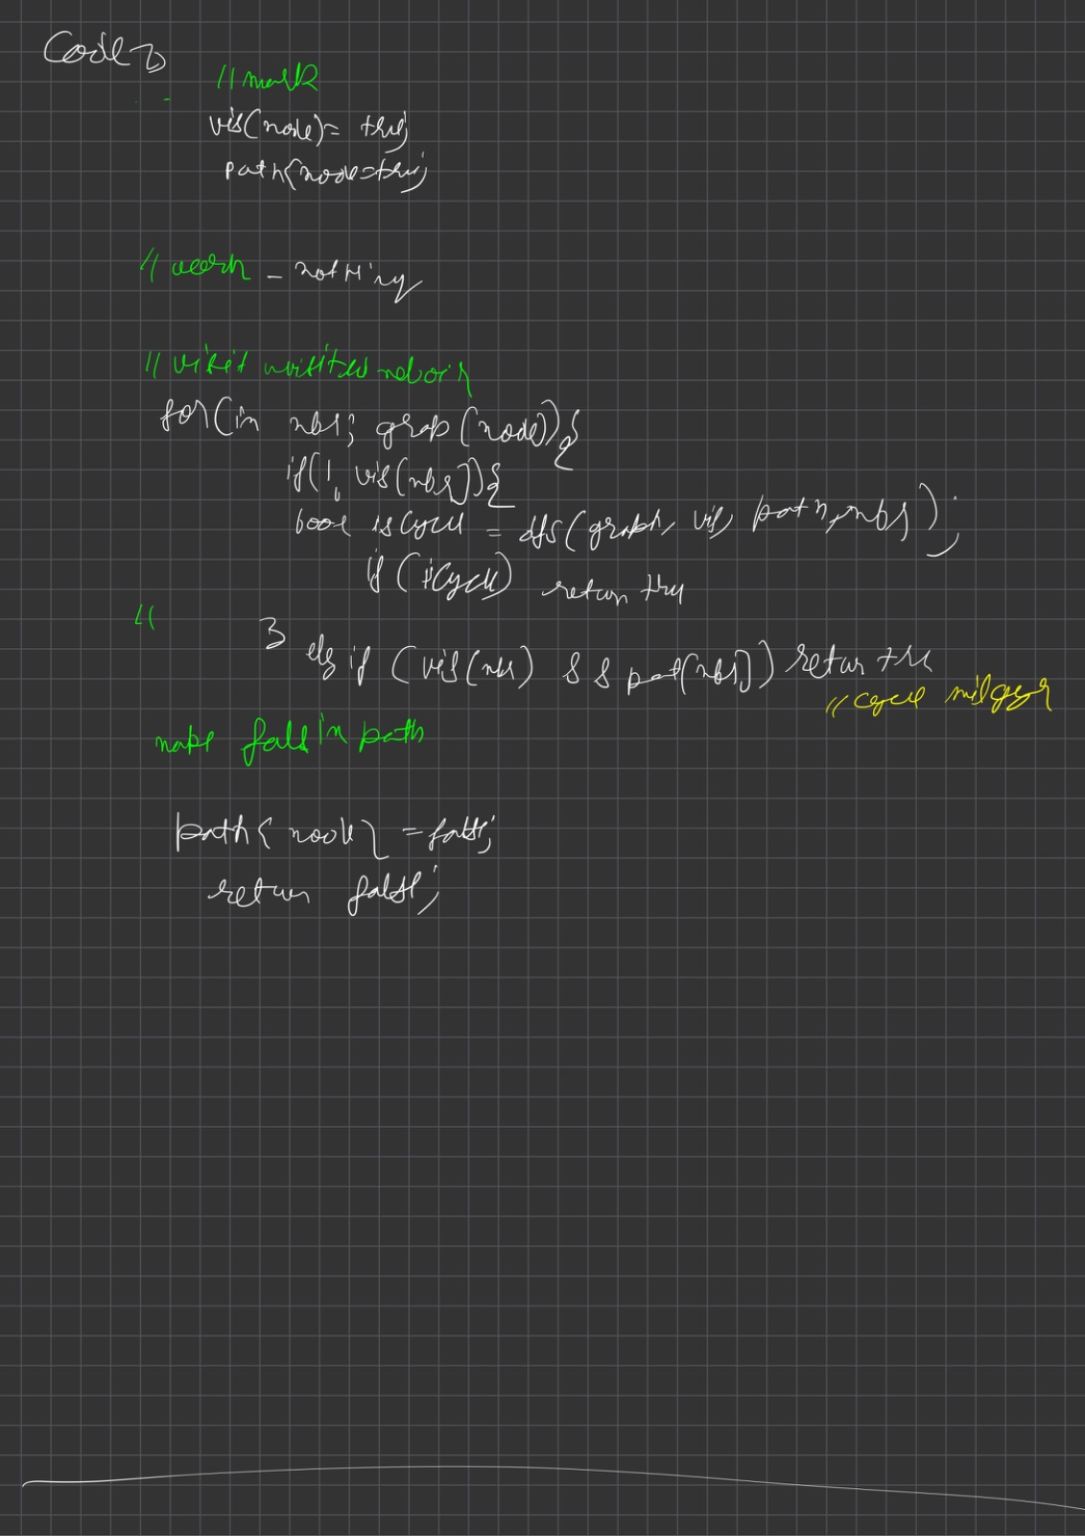 Code
//mark
vis(node)= tru;
path[node=tru;
// work - nothing
// visit unvisited neboir
for(in nbr; grap(node)){
if(! vis(nbr)){
bool isCycle = dfs(graph, vis, path, nbr);
if (isCycle) return tru
//
} els if (vis(nbr) && pat[nbr]) return tru
//cycle milgya
make false in path
path[node] = false;
return false;